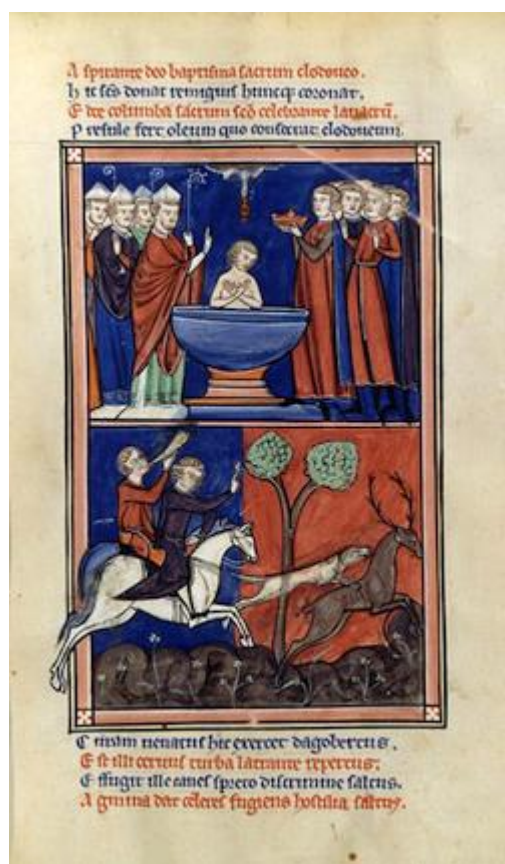 Aspirante deo baptisma sacrum clodoveo.
Hic scs donat remigius huncq; coronat.
Ecce columba sacrum sco celebrante lavacru
Presule fert oleum quo consecrat clodoveum.
Curam venatus hic exercet dagobertus.
Est illi cervus turba latrante repertus;
Effugit ille canes spreto discrimine saltus.
Agmina dat celeres fugiens hostilia saltus.